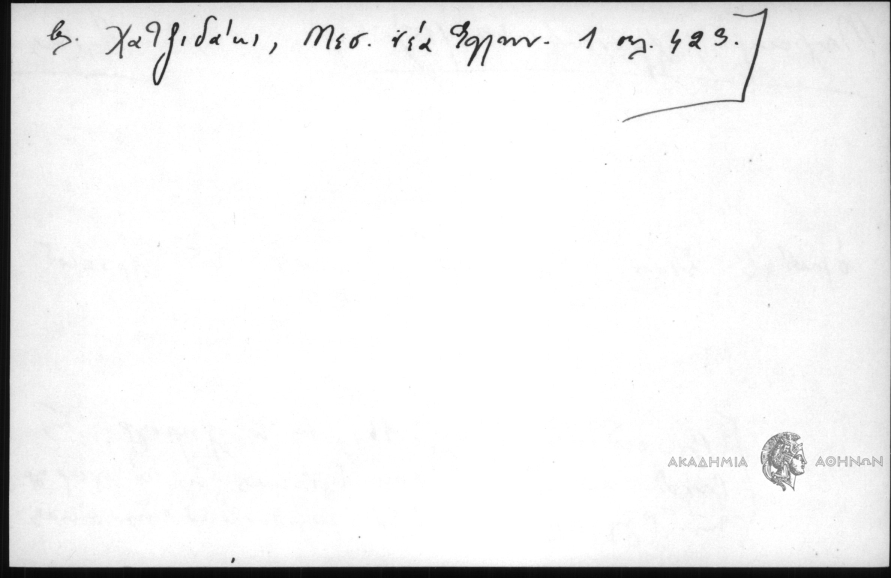 βλ. Χατζιδάκι, Μεσ. νέα Ἑλλην. 1 σελ. 423.
ΑΚΑΔΗΜΙΑ ΑΘΗΝΩΝ